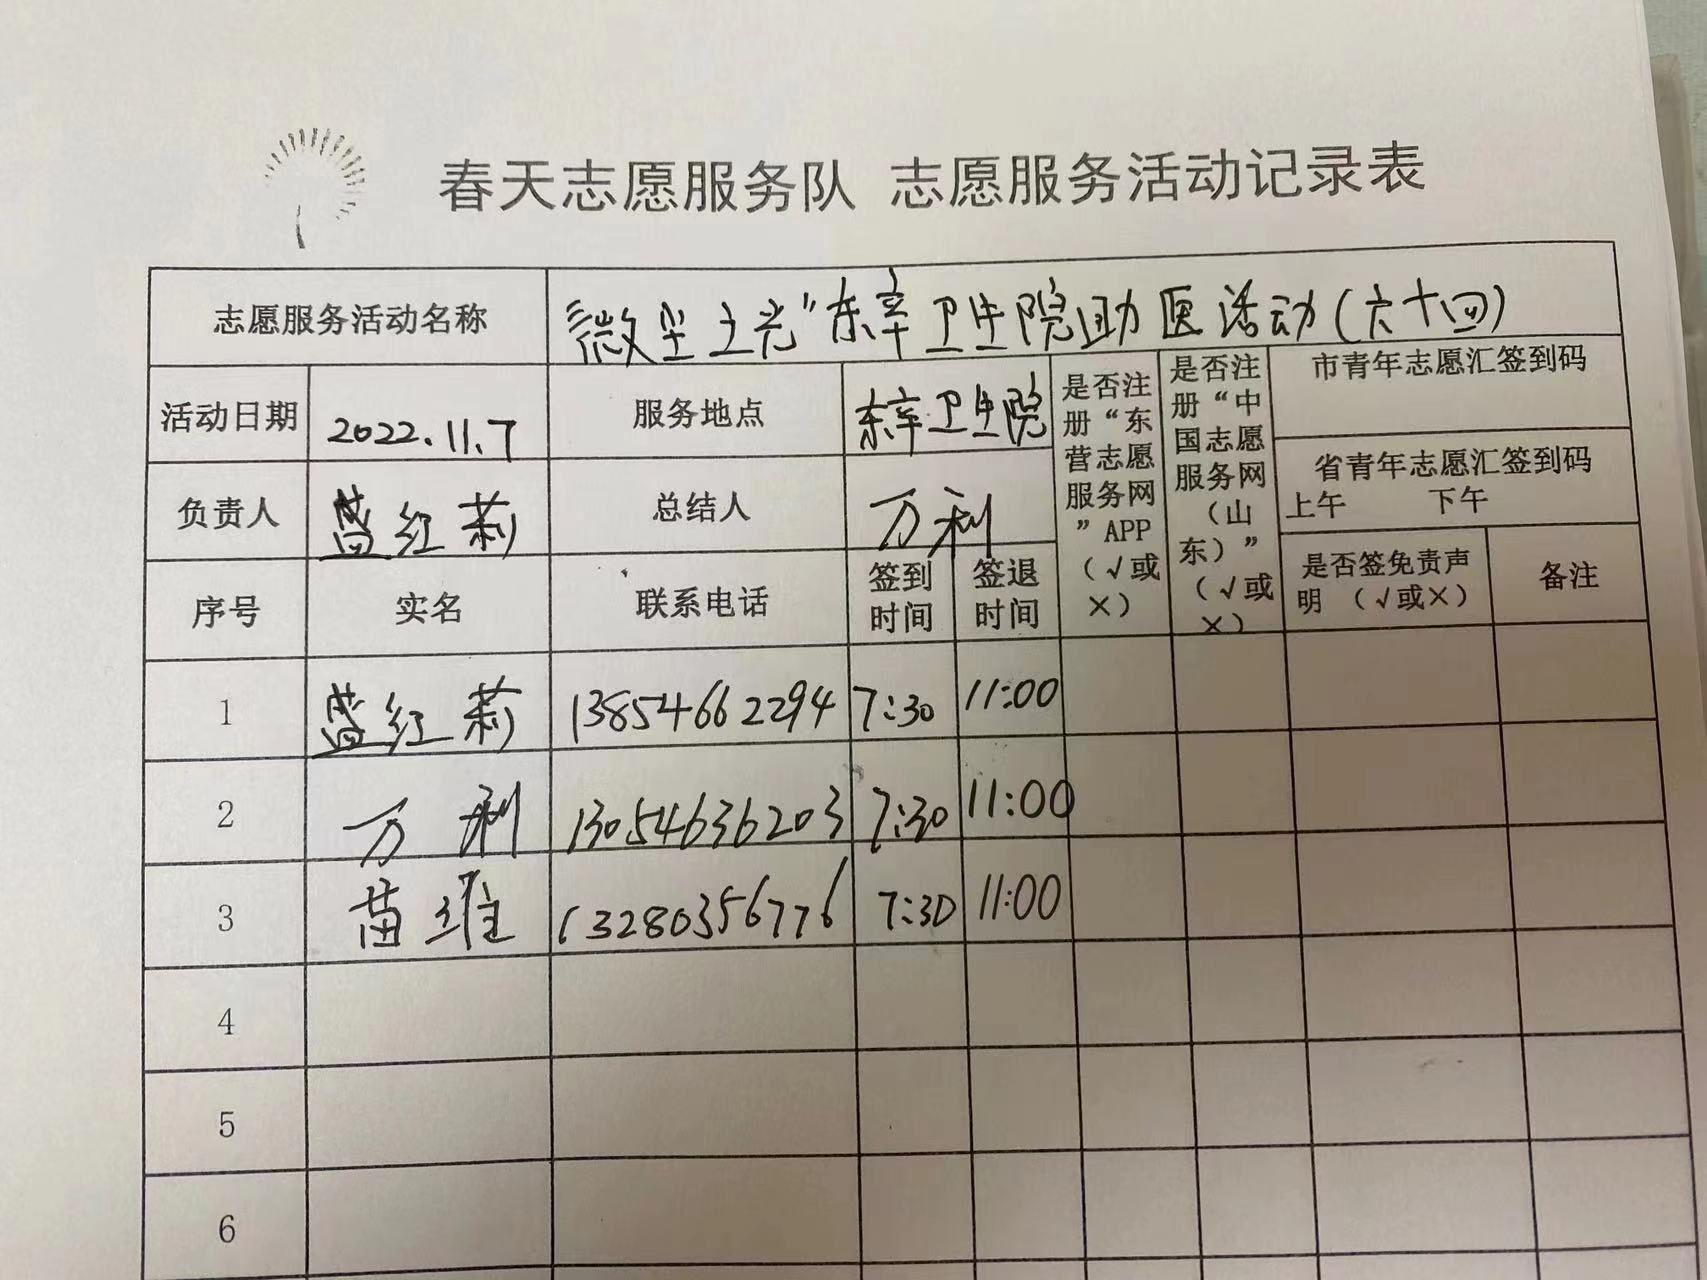 春天志愿服务队 志愿服务活动记录表
志愿服务活动名称 “微尘之光”东辛卫生院助医活动(六十四)
活动日期 2022.11.7 服务地点 东辛卫生院
是否注册“东营志愿服务网”APP（√或×）
是否注册“中国志愿服务网（山东）”（√或×）
市青年志愿汇签到码
省青年志愿汇签到码
上午 下午
负责人 蓝红莉 总结人 万利
序号 实名 联系电话 签到时间 签退时间 是否签免责声明（√或×） 备注
1 蓝红莉 13854662294 7:30 11:00
2 万利 13054636203 7:30 11:00
3 苗维 13280356776 7:30 11:00
4
5
6